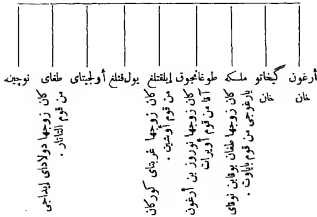 أرغون خان
گيخاتو خان
ملكه
كان زوجها طغان بوقا بن نوقاى
يارغوجى من قوم باياوت .
طوغانجوق
كان زوجها نوروز بن أرغون
آقا من قوم أويرات
ايلقتلغ
كان زوجها غربتاى كوركان
من قوم أوشين .
يول قتلغ
أولجيتاى
طغاى
كان زوجها دولاداى ايداجى
من قوم التاتار .
نوجين